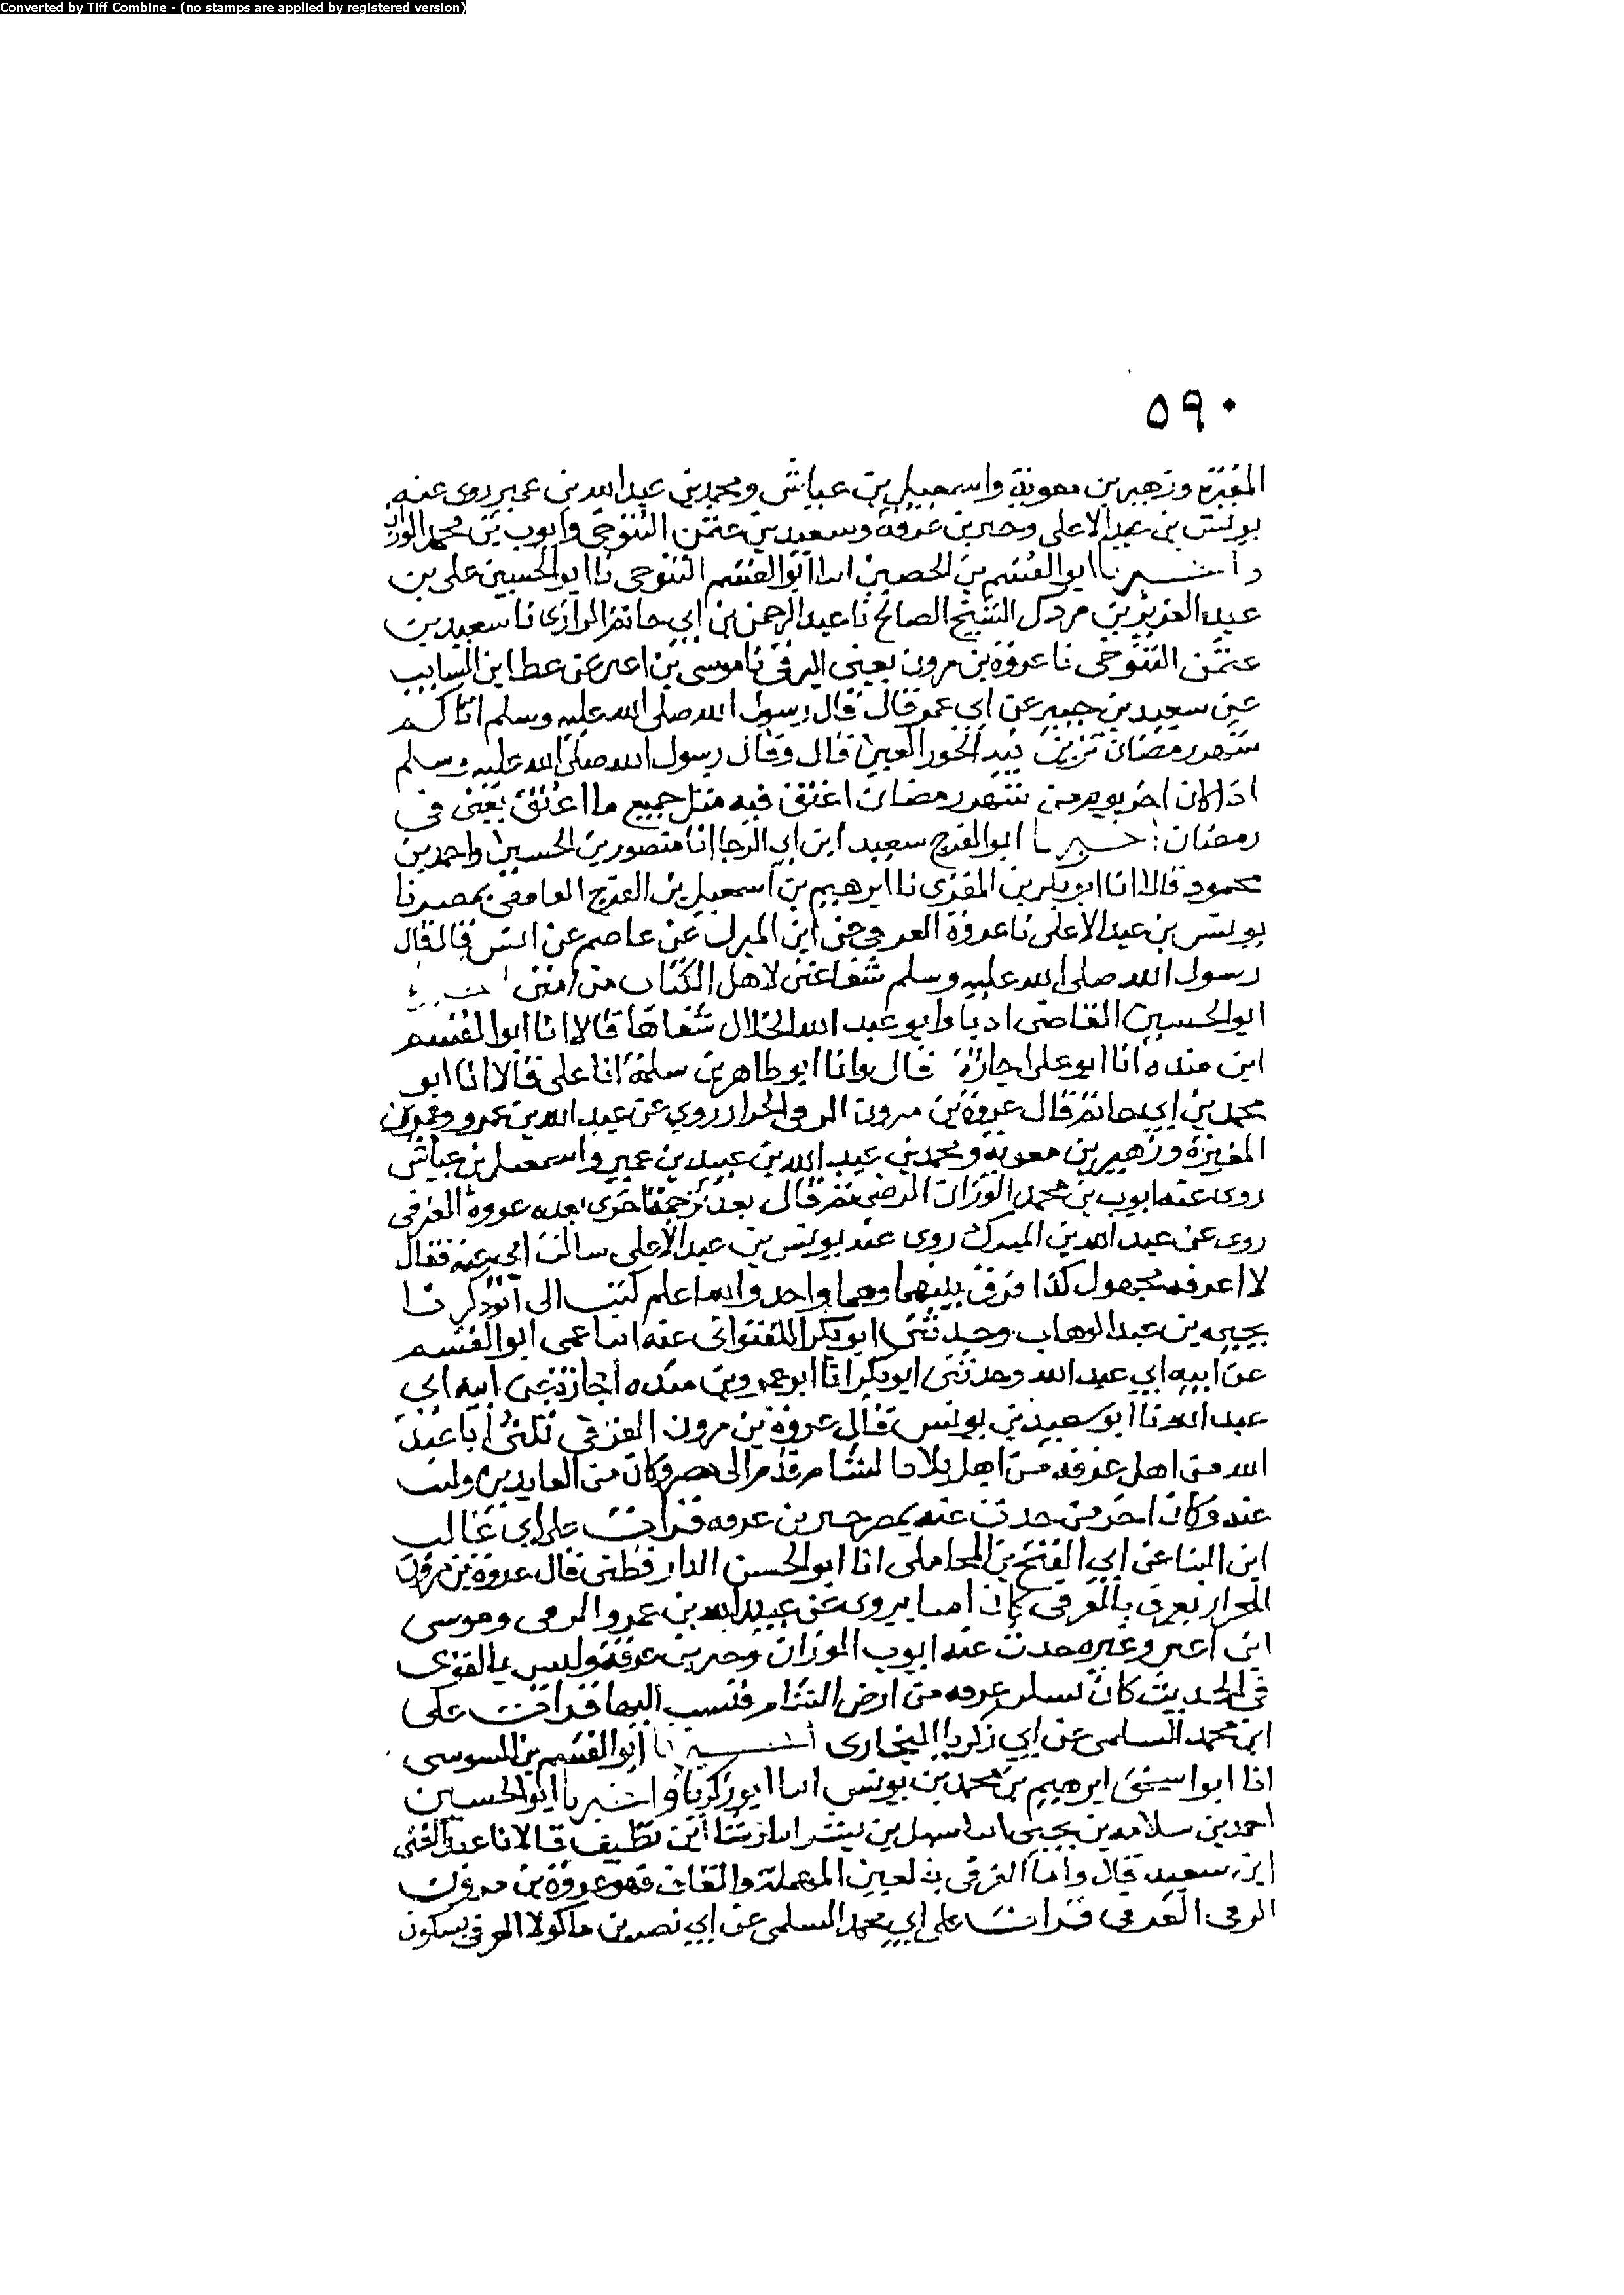 Converted by Tiff Combine - (no stamps are applied by registered version)
٥٩٠
المغيرة وزهير بن معوية واسمعيل بن عياش ومحمد بن عبد الله بن عمير روى عنه
يونس بن عبد الاعلى وخير بن عرفة وسعيد بن عثمن التنوخي وايوب بن محمد الوزان
واخبرنا ابو القسم بن الحصين انا ابو القسم التنوخي نا ابو الحسين على بن
عبد العزيز بن مردك الشيخ الصالح نا عبد الرحمن بن ابي حاتم الرازى نا سعيد بن
عثمن التنوخى نا عروة بن مرون يعنى الرقى نا موسى بن اعين عن عطا ابن السايب
عن سعيد بن جبير عن ابي عمر قال قال رسول الله صلى الله عليه وسلم اتاكم
شهر رمضان تزين فيه الحور العين قال وقال رسول الله صلى الله عليه وسلم
اذا كان اخر يوم من شهر رمضان اعتق فيه مثل جميع ما اعتق يعنى في
رمضان اخبرنا ابو الفرج سعيد ابن ابي الرجا انا منصور بن الحسين واحمد بن
محمود قالا انا ابو بكر بن المقرى نا ابرهيم بن اسمعيل بن الفرج الغافقى بمصر نا
يونس بن عبد الاعلى نا عروة العرقي عن ابن المبرك عن عاصم عن انس قال قال
رسول الله صلى الله عليه وسلم شفاعتى لاهل الكباير من امتى اخبرنا
ابو الحسين القاضى اذنا وابو عبد الله الخلال شفاها قالا انا ابو القسم
ابن منده انا ابو على اجازة قال وانا ابو طاهر بن سلمة انا على قالا انا ابو
محمد بن ابي حاتم قال عروة بن مرون الرقى الجرار روي عن عبيد الله بن عمرو وعمر بن
المغيرة وزهير بن معوية ومحمد بن عبد الله بن عبيد بن عمير واسمعيل بن عياش
روى عنه ايوب بن محمد الوزان الرقى ثم قال بعد ترجمة اخرى بعده عروة العرقى
روى عن عبد الله بن المبرك روى عنه يونس بن عبد الاعلى سالت ابي عنه فقال
لا اعرفه مجهول كذا فرق بينهما وهما واحد والله اعلم كتب الى ابو زكريا
يحيى بن عبد الوهاب وحدثنى ابو بكر اللفتوانى عنه انا عمى ابو القسم
عن ابيه ابي عبد الله وحدثنى ابو بكر انا ابو عمرو بن منده اجازة عن ابيه ابي
عبد الله نا ابو سعيد بن يونس قال عروة بن مرون العرقى يكنى ابا عبد
الله من اهل عرقه من اهل بلاد الشام قدم الى مصر وكان من العابدين وكتب
عنه وكان اخر من حدث عنه بمصر خير بن عرفه قرات على ابي غالب
ابن البنا عن ابي الفتح بن المحاملى انا ابو الحسن الدارقطنى قال عروة بن مرون
الجرار يعرف بالعرقى كان اميا يروى عن عبيد الله بن عمرو الرقى وموسى
ابن اعين وغيره حدث عنه ايوب الوزان وخير بن عرفة وليس بالقوى
في الحديث كان يسكن عرقه من ارض الشام فنسب اليها قرات على
ابن محمد السلمى عن ابي زكريا البخارى اخبرنا ابو القسم بن السوسى
انا ابو اسحق ابرهيم بن محمد بن يونس انا ابو زكريا واخبرنا ابو الحسين
احمد بن سلامه بن يحيى انا سهل بن بشر انا رشا بن نظيف قالا نا عبد الغنى
ابن سعيد قال واما العرقى بالعين المهملة والقاف فهو عروة بن مرون
الرقى العرقى قرات على ابي محمد السلمى عن ابي نصر بن ماكولا العرقى بسكون